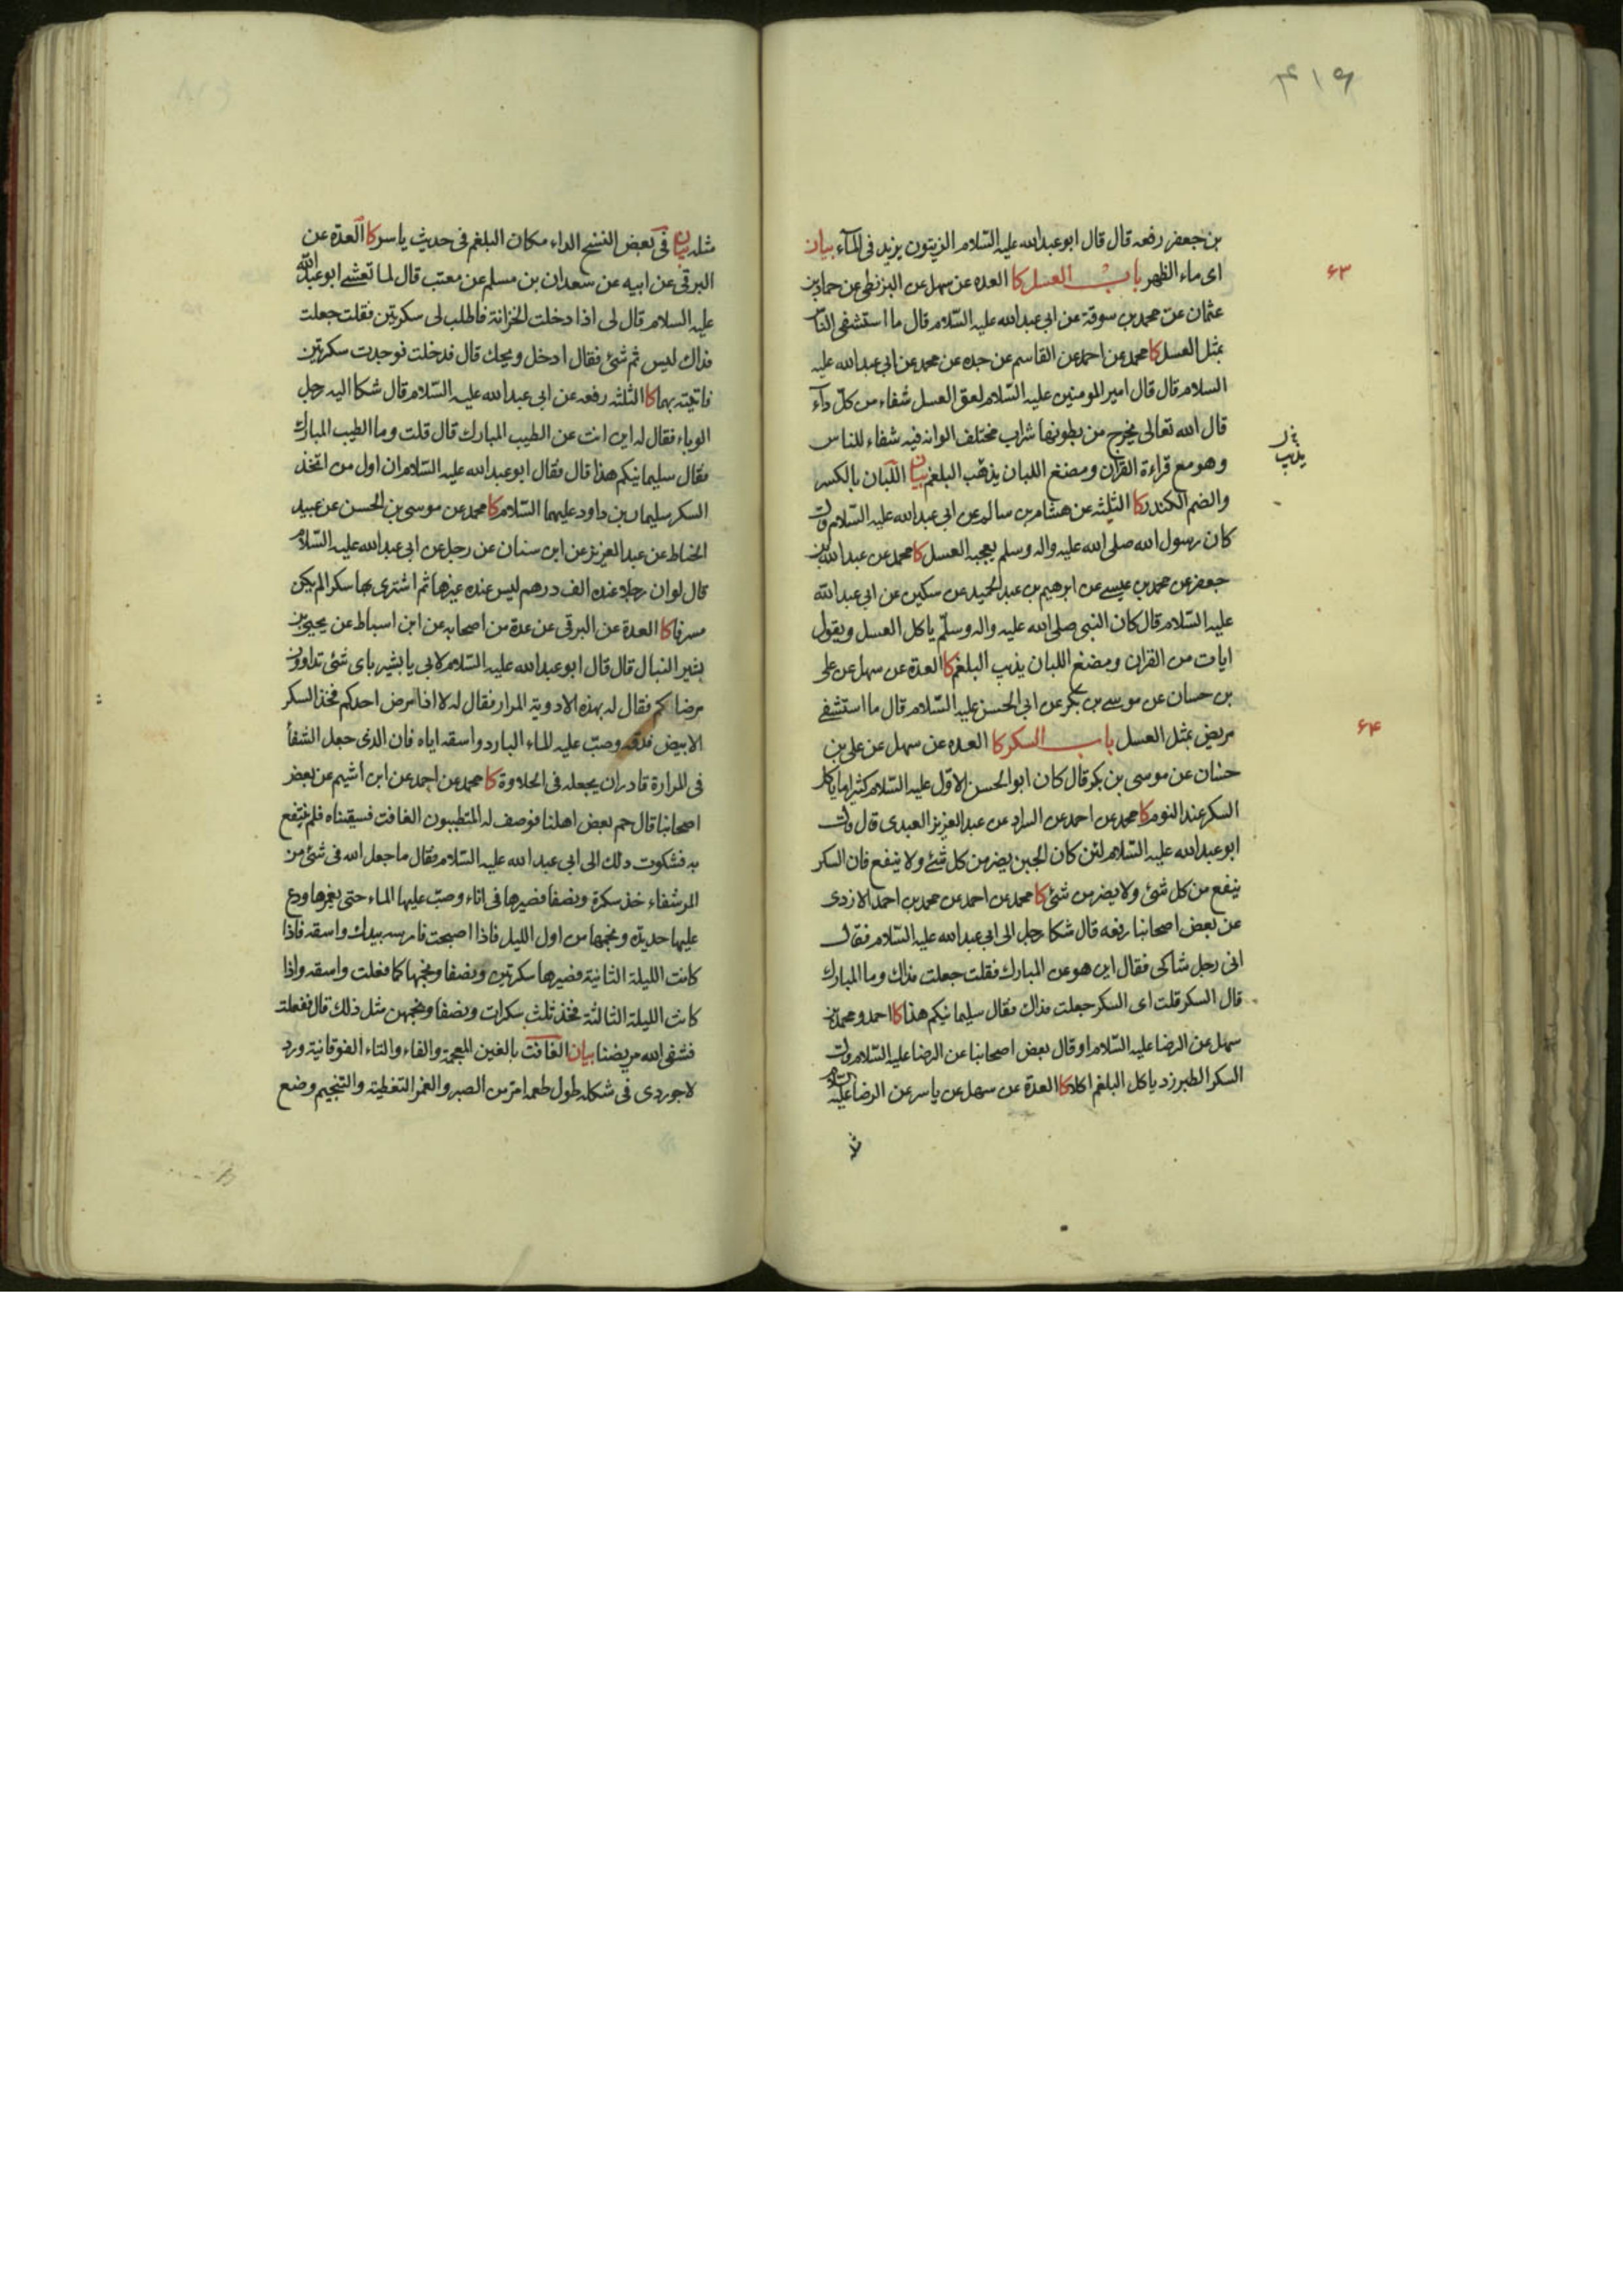 ۴۱۹
بن جعفر رفعه قال قال ابو عبدالله عليه السّلام الزيتون يزيد فى المآء بيان
اى ماء الظهر باب العسل كا العدة عن سهل عن البزنطى عن حماد بن
۶۳
عثمان عن محمد بن سوقة عن ابى عبدالله عليه السّلام قال ما استشفى الناس
بمثل العسل كا محمد عن احمد عن القاسم عن جده عن محمد عن ابى عبدالله عليه
السلام قال قال امير المومنين عليه السّلام لعق العسل شفاء من كلّ دآء
قال الله تعالى يخرج من بطونها شراب مختلف الوانه فيه شفاء للناس
وهو مع قراءة القرآن ومضغ اللبان يذهب البلغم بيان اللّبان بالكسر
يذيب
والضم الكندر كا الثلثه عن هشام بن سالم عن ابى عبدالله عليه السّلام قال
كان رسول الله صلى الله عليه واله وسلم يعجبه العسل كا محمد عن عبدالله بن
جعفر عن محمد بن عيسى عن ابرهيم بن عبد الحميد عن سكين عن ابى عبدالله
عليه السّلام قال كان النبى صلى الله عليه واله وسلّم ياكل العسل ويقول
ايات من القران ومضغ اللبان يذيب البلغم كا العدة عن سهل عن على
بن حسان عن موسى بن بكر عن ابى الحسن عليه السّلام قال ما استشفى
مريض بمثل العسل باب السكر كا العده عن سهل عن على بن
۶۴
حسّان عن موسى بن بكر قال كان ابو الحسن الاوّل عليه السّلام كثيرا ما ياكل
السكر عند النوم كا محمد عن احمد عن السراد عن عبد العزيز العبدى قال قال
ابو عبدالله عليه السّلام لئن كان الجبن يضر من كل شئ ولا ينفع فان السكر
ينفع من كل شئ ولا يضر من شئ كا محمد عن احمد عن محمد بن احمد الازدى
عن بعض اصحابنا رفعه قال شكا رجل الى ابى عبدالله عليه السّلام فقال
انى رجل شاكى فقال اين هو عن المبارك فقلت جعلت فداك وما المبارك
قال السكر قلت اى السكر جعلت فداك فقال سليمانيكم هذا كا احمد ومحمد بن
سهل عن الرضا عليه السّلام او قال بعض اصحابنا عن الرضا عليه السّلام قال
السكر الطبرزد ياكل البلغم اكلا كا العدة عن سهل عن ياسر عن الرضا عليه السّلام
مثله
مثله بيان فى بعض النسخ الداء مكان البلغم فى حديث ياسر كا العدة عن
البرقى عن ابيه عن سعدان بن مسلم عن معتب قال لما تعشى ابو عبدالله
عليه السلام قال لى اذا دخلت الخزانة فاطلب لى سكرتين فقلت جعلت
فداك ليس ثم شئ فقال ادخل ويحك قال فدخلت فوجدت سكرتين
فاتيته بهما كا الثلثه رفعه عن ابى عبدالله عليه السّلام قال شكا اليه رجل
الوباء فقال له اين انت عن الطيب المبارك قال قلت وما الطيب المبارك
فقال سليمانيكم هذا قال فقال ابو عبدالله عليه السّلام ان اول من اتخذ
السكر سليمان بن داود عليهما السّلام كا محمد عن موسى بن الحسن عن عبيد
الخناط عن عبد العزيز عن ابن سنان عن رجل عن ابى عبدالله عليه السّلام
قال لو ان رجلا عنده الف درهم ليس عنده غيرها ثم اشترى بها سكرا لم يكن
مسرفا كا العدة عن البرقى عن عدة من اصحابه عن ابن اسباط عن يحيى بن
بشير النبال قال قال ابو عبدالله عليه السّلام لابى يا بشير باى شئ تداوون
مرضاكم فقال له بهذه الادوية المرار فقال له لا اذا مرض احدكم فخذ السكر
الابيض فدقه وصبّ عليه الماء البارد واسقه اياه فان الذى جعل الشفأ
فى المرارة قادر ان يجعله فى الحلاوة كا محمد عن احمد عن ابن اشيم عن بعض
اصحابنا قال حم بعض اهلنا فوصف له المتطببون الغافت فسقيناه فلم ينتفع
به فشكوت ذلك الى ابى عبدالله عليه السّلام فقال ما جعل الله فى شئ من
المر شفاء خذ سكرة ونصفا فصيرها فى اناء وصبّ عليها الماء حتى يغمرها وضع
عليها حديدة ونجمها من اول الليل فاذا اصبحت فامرسه بيدك واسقه فاذا
كانت الليلة الثانية فصيرها سكرتين ونصفا ونجمها كما فعلت واسقه واذا
كانت الليلة الثالثة فخذ ثلث سكرات ونصفا ونجمهن مثل ذلك قال ففعلت
فشفى الله مريضنا بيان الغافت بالغين المعجمة والفاء والتاء الفوقانية ورد
لاجوردى فى شكله طول طعمه امرّ من الصبر والغمر التغطية والتنجيم وضع